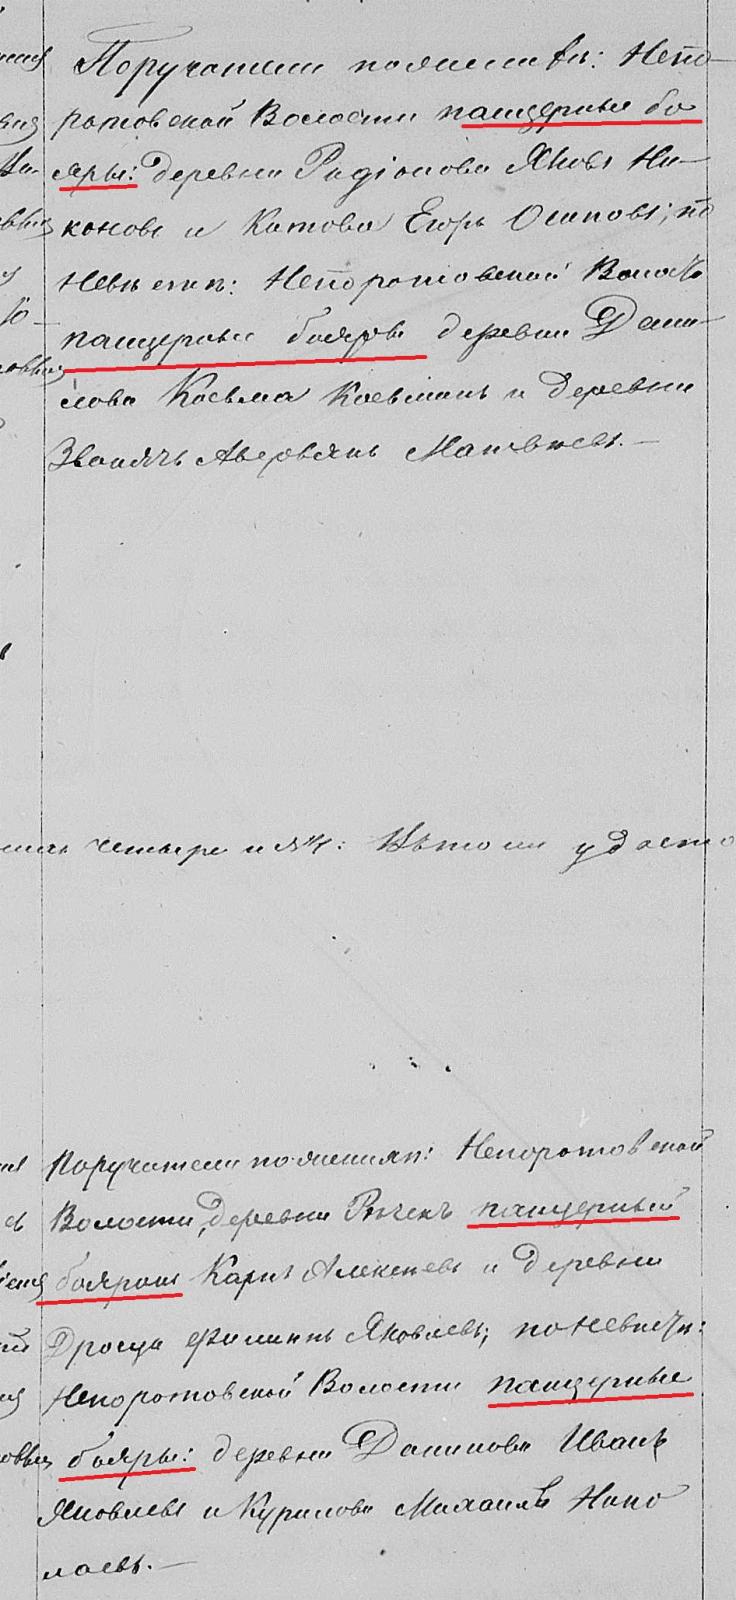 Поручители по женихѣ: Непо-
ротовской Волости панцерные бо
яры: деревни Радіонова Яковъ Ни-
коновъ и Катова Егоръ Осиповъ; по
невѣстѣ: Непоротовской Волости
панцерные бояры деревни Дани-
лова Косьма Косьминъ и деревни
Аверьянъ Матвѣевъ.—
четыре
Поручители по женихѣ: Непоротовской
Волости, деревни панцерный
бояринъ Карпъ Алексѣевъ и деревни
Филиппъ Яковлевъ; по невѣстѣ:
Непоротовской Волости панцерные
бояры: деревни Данилова Иванъ
Яковлевъ и Курилова Михаилъ Нико
лаевъ.—